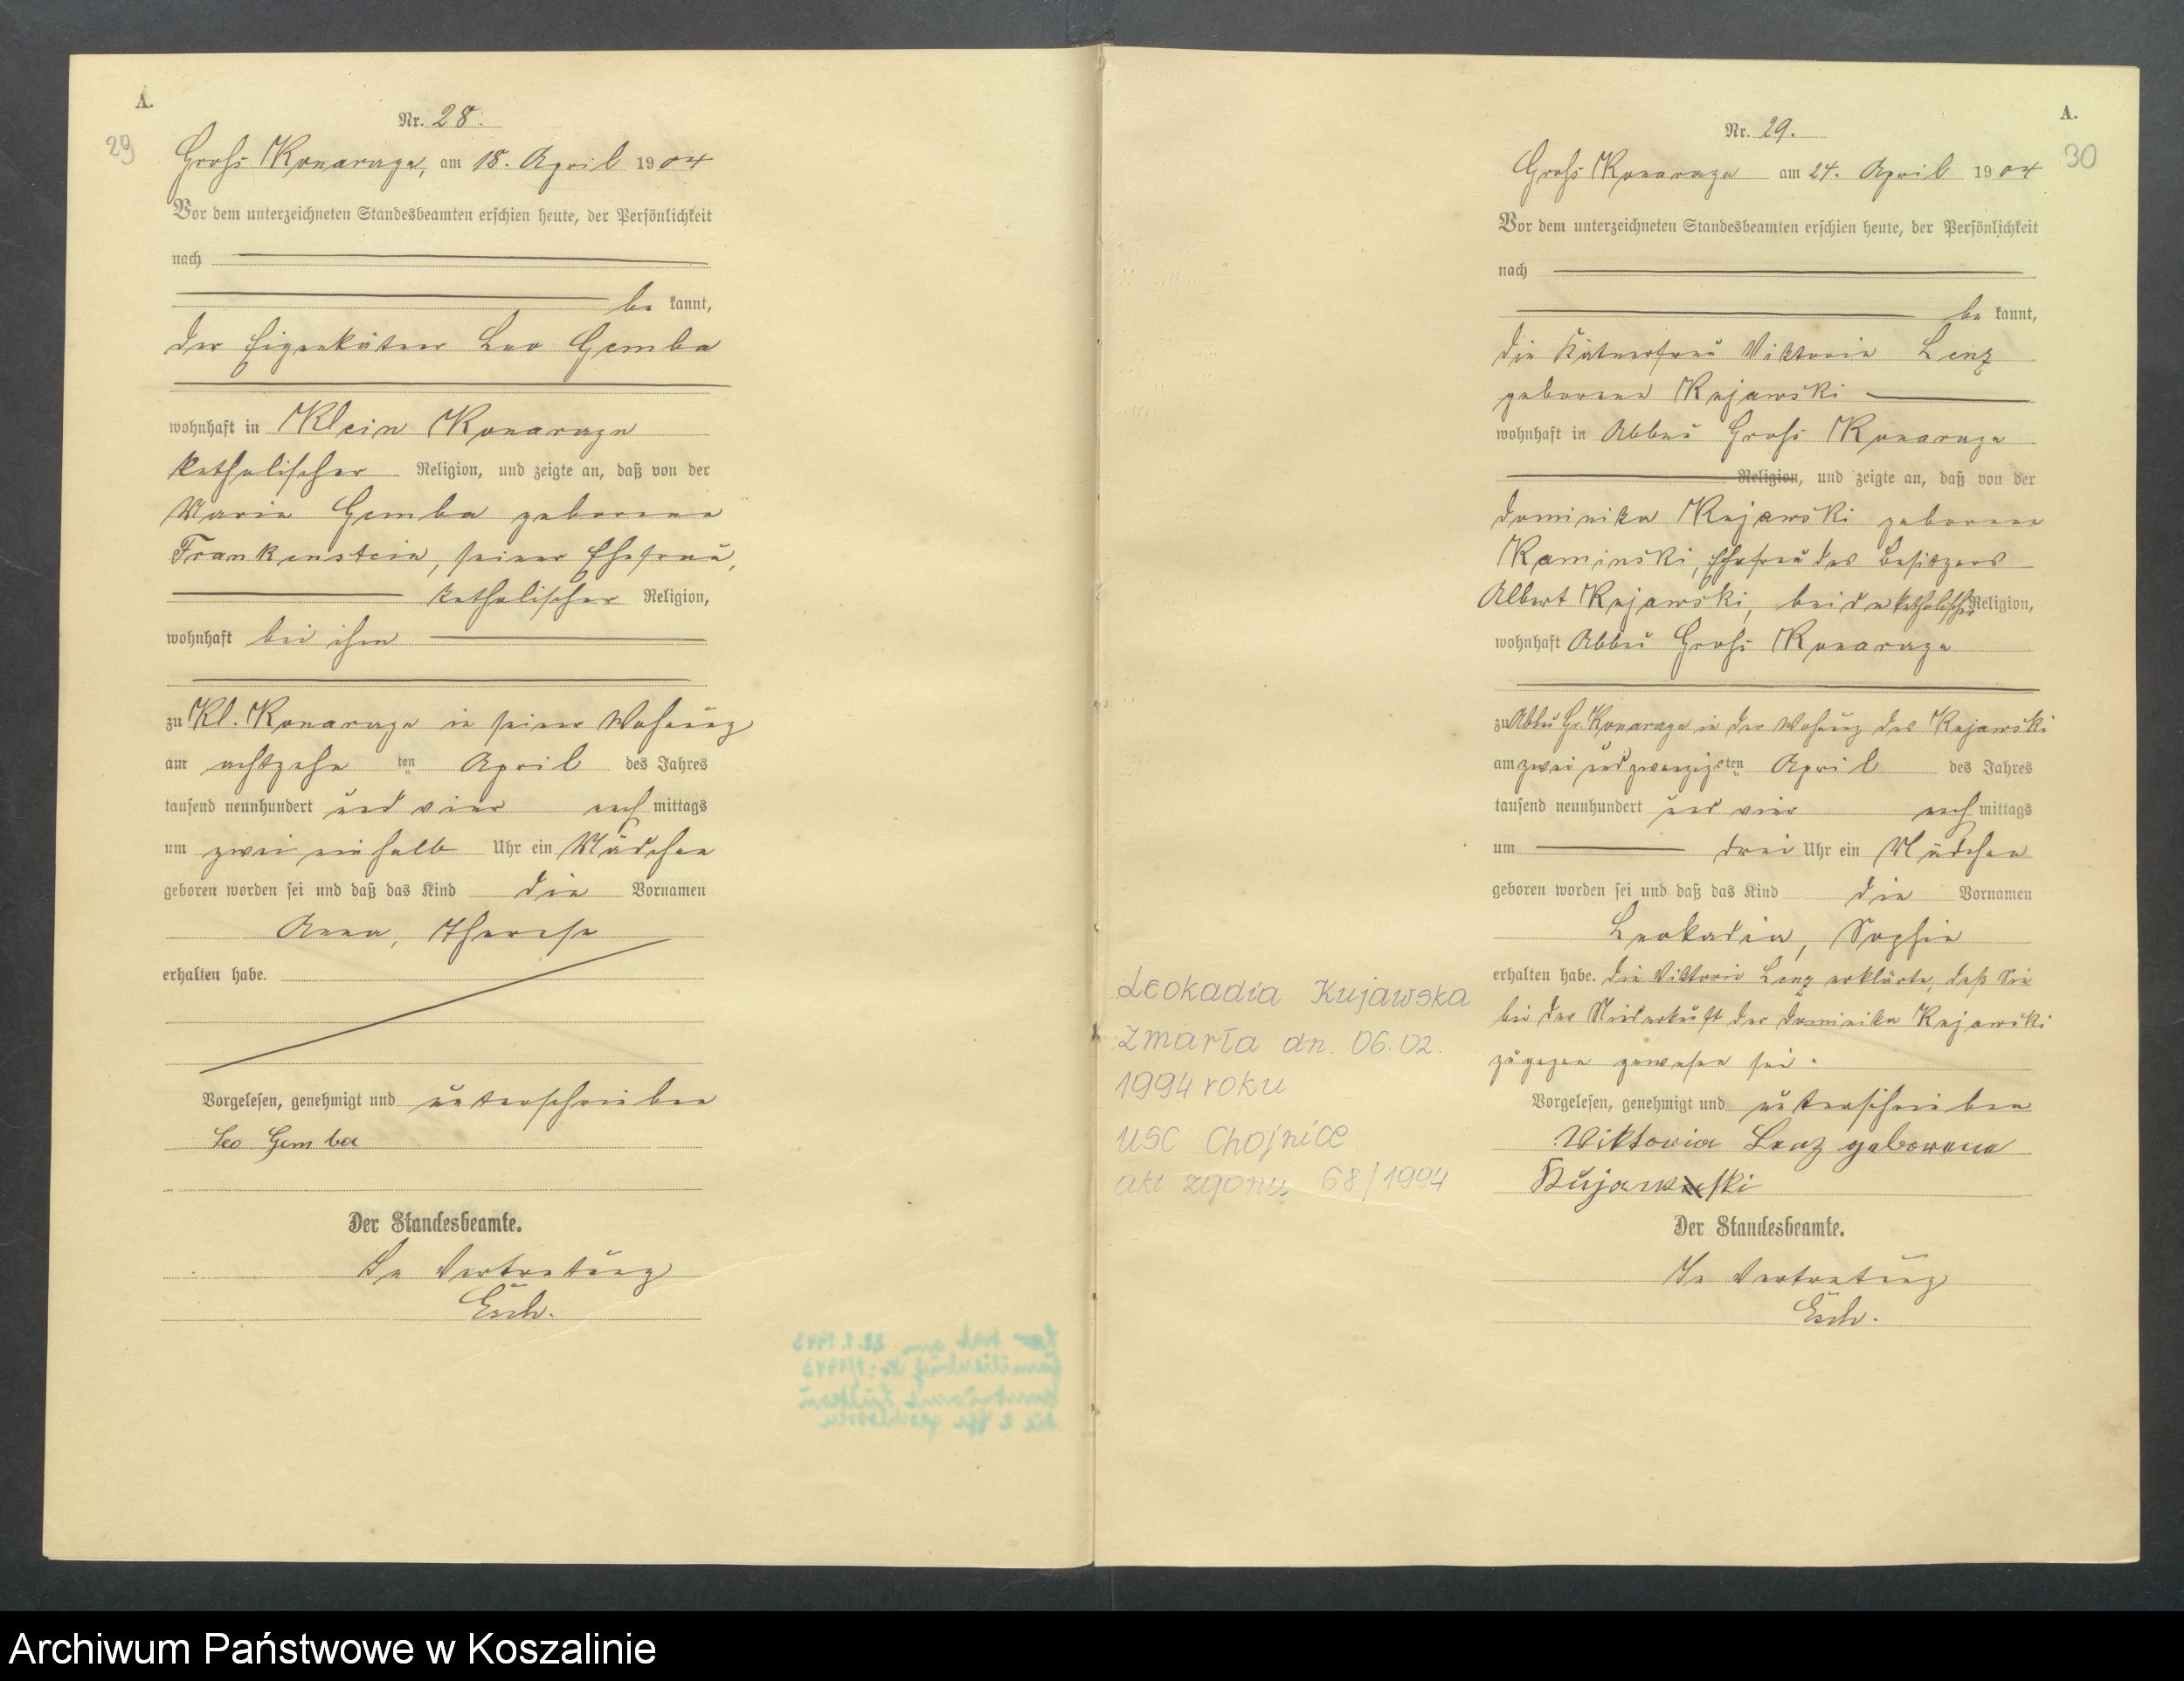 A.
29
Nr. 28.
Groß Konarczyn, am 18. April 1904
Vor dem unterzeichneten Standesbeamten erschien heute, der Persönlichkeit
nach
be kannt,
der Eigenkätner Leo Gemba
wohnhaft in Klein Konarczyn
katholischer Religion, und zeigte an, daß von der
Maria Gemba geborene
Frankenstein, seiner Ehefrau,
katholischer Religion,
wohnhaft bei ihm
zu Kl. Konarczyn in seiner Wohnung
am achtzehn ten April des Jahres
tausend neunhundert und vier nach mittags
um zwei ein halb Uhr ein Mädchen
geboren worden sei und daß das Kind die Vornamen
Anna, Therese
erhalten habe.
Vorgelesen, genehmigt und unterschrieben
Leo Gemba
Der Standesbeamte.
In Vertretung
Esch.
A.
30
Nr. 29.
Groß Konarczyn am 24. April 1904
Vor dem unterzeichneten Standesbeamten erschien heute, der Persönlichkeit
nach
be kannt,
die Kätnerfrau Viktoria Lenz
geborene Kujawski
wohnhaft in Abbau Groß Konarczyn
Religion, und zeigte an, daß von der
Dominika Kujawski geborene
Kaminski, Ehefrau des Besitzers
Albert Kujawski, beide katholischer Religion,
wohnhaft Abbau Groß Konarczyn
zu Abbau Gr. Konarczyn in der Wohnung des Kujawski
am zwei und zwanzigsten April des Jahres
tausend neunhundert und vier nach mittags
um drei Uhr ein Mädchen
geboren worden sei und daß das Kind die Vornamen
Leokadia, Sophie
erhalten habe. Die Viktoria Lenz erklärte, daß sie
bei der Niederkunft der Dominika Kujawski
zugegen gewesen sei.
Vorgelesen, genehmigt und unterschrieben
Viktoria Lenz geborene
Kujawski
Der Standesbeamte.
In Vertretung
Esch.
Leokadia Kujawska
zmarła dn. 06.02.
1994 roku
USC Chojnice
akt zgonu 68/1994
Archiwum Państwowe w Koszalinie